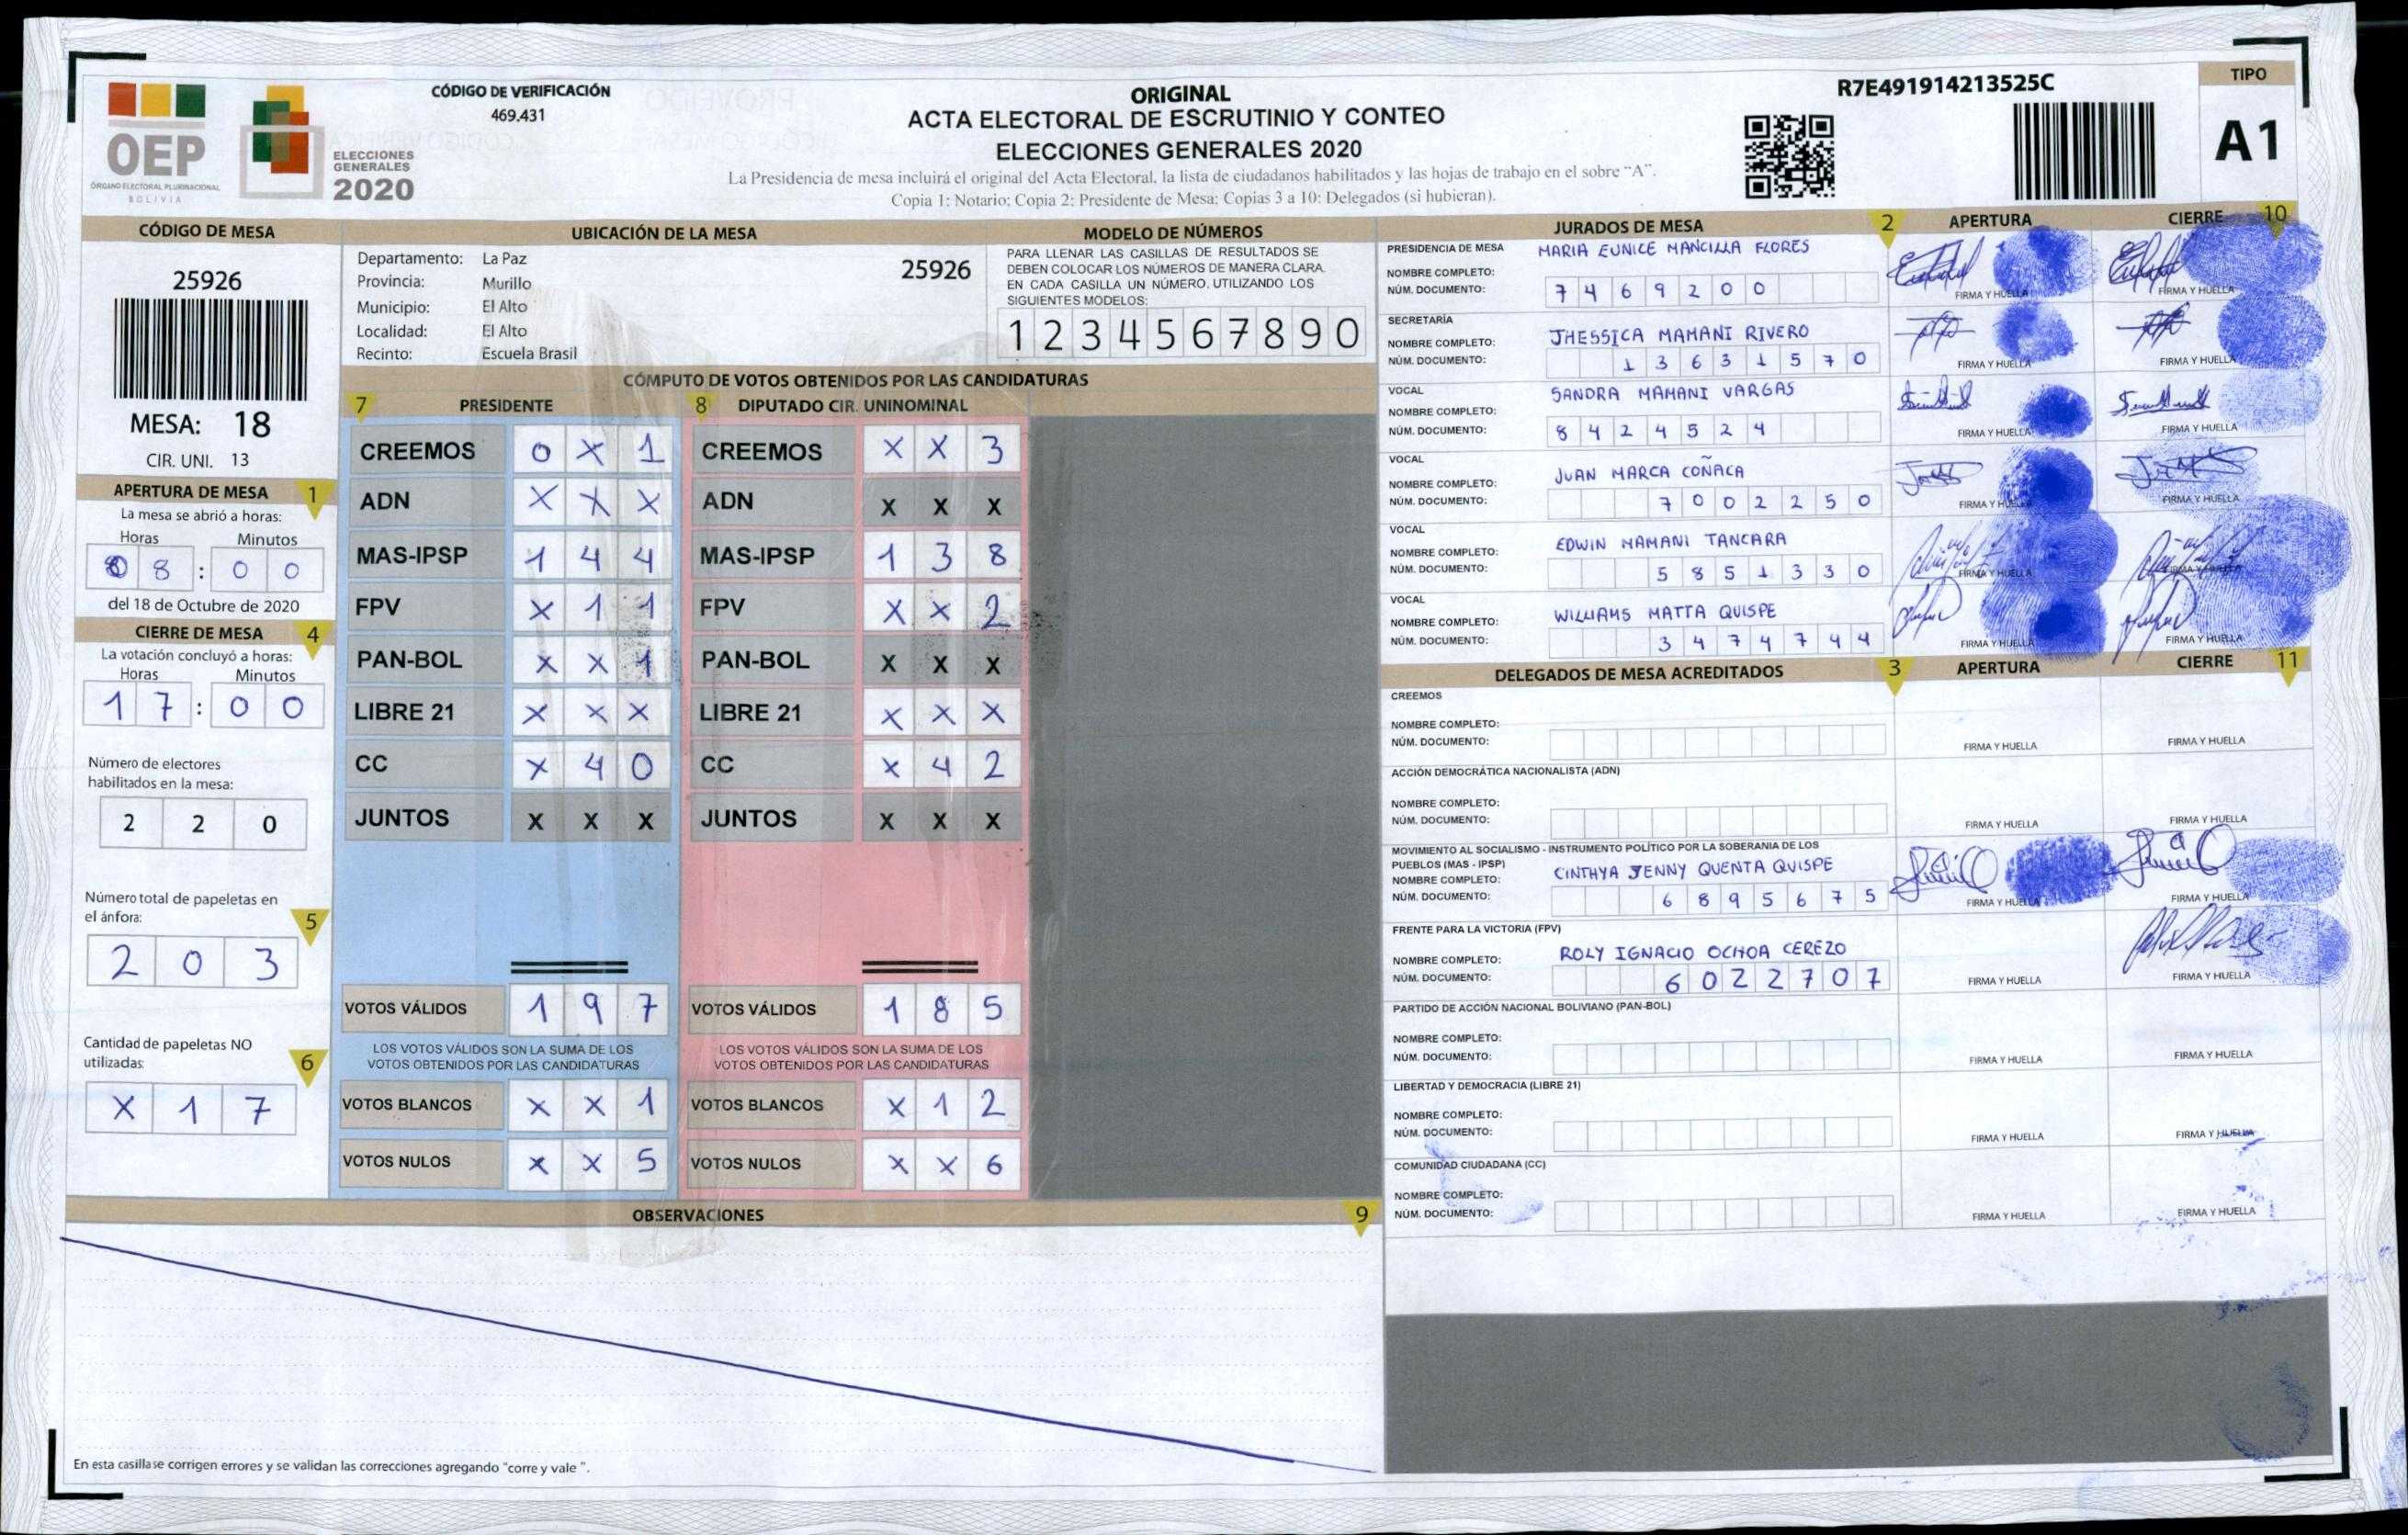 CÓDIGO DE VERIFICACIÓN
469.431
OEP
ÓRGANO ELECTORAL PLURINACIONAL
BOLIVIA
ELECCIONES
GENERALES
2020
ORIGINAL
ACTA ELECTORAL DE ESCRUTINIO Y CONTEO
ELECCIONES GENERALES 2020
La Presidencia de mesa incluirá el original del Acta Electoral, la lista de ciudadanos habilitados y las hojas de trabajo en el sobre "A".
Copia 1: Notario; Copia 2: Presidente de Mesa; Copias 3 a 10: Delegados (si hubieran).
R7E491914213525C
TIPO
A1
CÓDIGO DE MESA
25926
MESA: 18
CIR. UNI. 13
APERTURA DE MESA 1
La mesa se abrió a horas:
Horas Minutos
0 8 : 0 0
del 18 de Octubre de 2020
CIERRE DE MESA 4
La votación concluyó a horas:
Horas Minutos
1 7 : 0 0
Número de electores
habilitados en la mesa:
2 2 0
Número total de papeletas en
el ánfora: 5
2 0 3
Cantidad de papeletas NO
utilizadas: 6
X 1 7
UBICACIÓN DE LA MESA
Departamento: La Paz
Provincia: Murillo
Municipio: El Alto
Localidad: El Alto
Recinto: Escuela Brasil
25926
MODELO DE NÚMEROS
PARA LLENAR LAS CASILLAS DE RESULTADOS SE
DEBEN COLOCAR LOS NÚMEROS DE MANERA CLARA.
EN CADA CASILLA UN NÚMERO, UTILIZANDO LOS
SIGUIENTES MODELOS:
1 2 3 4 5 6 7 8 9 0
CÓMPUTO DE VOTOS OBTENIDOS POR LAS CANDIDATURAS
7 PRESIDENTE
CREEMOS 0 X 1
ADN X X X
MAS-IPSP 1 4 4
FPV X 1 1
PAN-BOL X X 1
LIBRE 21 X X X
CC X 4 0
JUNTOS X X X
VOTOS VÁLIDOS 1 9 7
LOS VOTOS VÁLIDOS SON LA SUMA DE LOS
VOTOS OBTENIDOS POR LAS CANDIDATURAS
VOTOS BLANCOS X X 1
VOTOS NULOS X X 5
8 DIPUTADO CIR. UNINOMINAL
CREEMOS X X 3
ADN X X X
MAS-IPSP 1 3 8
FPV X X 2
PAN-BOL X X X
LIBRE 21 X X X
CC X 4 2
JUNTOS X X X
VOTOS VÁLIDOS 1 8 5
LOS VOTOS VÁLIDOS SON LA SUMA DE LOS
VOTOS OBTENIDOS POR LAS CANDIDATURAS
VOTOS BLANCOS X 1 2
VOTOS NULOS X X 6
OBSERVACIONES 9
En esta casilla se corrigen errores y se validan las correcciones agregando "corre y vale ".
JURADOS DE MESA 2 APERTURA CIERRE 10
PRESIDENCIA DE MESA
NOMBRE COMPLETO: MARIA EUNICE MANCILLA FLORES
NÚM. DOCUMENTO: 7 4 6 9 2 0 0
FIRMA Y HUELLA FIRMA Y HUELLA
SECRETARÍA
NOMBRE COMPLETO: JHESSICA MAMANI RIVERO
NÚM. DOCUMENTO: 1 3 6 3 1 5 7 0
FIRMA Y HUELLA FIRMA Y HUELLA
VOCAL
NOMBRE COMPLETO: SANDRA MAMANI VARGAS
NÚM. DOCUMENTO: 8 4 2 4 5 2 4
FIRMA Y HUELLA FIRMA Y HUELLA
VOCAL
NOMBRE COMPLETO: JUAN MARCA COÑACA
NÚM. DOCUMENTO: 7 0 0 2 2 5 0
FIRMA Y HUELLA FIRMA Y HUELLA
VOCAL
NOMBRE COMPLETO: EDWIN MAMANI TANCARA
NÚM. DOCUMENTO: 5 8 5 1 3 3 0
FIRMA Y HUELLA FIRMA Y HUELLA
VOCAL
NOMBRE COMPLETO: WILLIAMS MATTA QUISPE
NÚM. DOCUMENTO: 3 4 7 4 7 4 4
FIRMA Y HUELLA FIRMA Y HUELLA
DELEGADOS DE MESA ACREDITADOS 3 APERTURA CIERRE 11
CREEMOS
NOMBRE COMPLETO:
NÚM. DOCUMENTO:
FIRMA Y HUELLA FIRMA Y HUELLA
ACCIÓN DEMOCRÁTICA NACIONALISTA (ADN)
NOMBRE COMPLETO:
NÚM. DOCUMENTO:
FIRMA Y HUELLA FIRMA Y HUELLA
MOVIMIENTO AL SOCIALISMO - INSTRUMENTO POLÍTICO POR LA SOBERANIA DE LOS
PUEBLOS (MAS - IPSP)
NOMBRE COMPLETO: CINTHYA JENNY QUENTA QUISPE
NÚM. DOCUMENTO: 6 8 9 5 6 7 5
FIRMA Y HUELLA FIRMA Y HUELLA
FRENTE PARA LA VICTORIA (FPV)
NOMBRE COMPLETO: ROLY IGNACIO OCHOA CEREZO
NÚM. DOCUMENTO: 6 0 2 2 7 0 7
FIRMA Y HUELLA FIRMA Y HUELLA
PARTIDO DE ACCIÓN NACIONAL BOLIVIANO (PAN-BOL)
NOMBRE COMPLETO:
NÚM. DOCUMENTO:
FIRMA Y HUELLA FIRMA Y HUELLA
LIBERTAD Y DEMOCRACIA (LIBRE 21)
NOMBRE COMPLETO:
NÚM. DOCUMENTO:
FIRMA Y HUELLA FIRMA Y HUELLA
COMUNIDAD CIUDADANA (CC)
NOMBRE COMPLETO:
NÚM. DOCUMENTO:
FIRMA Y HUELLA FIRMA Y HUELLA